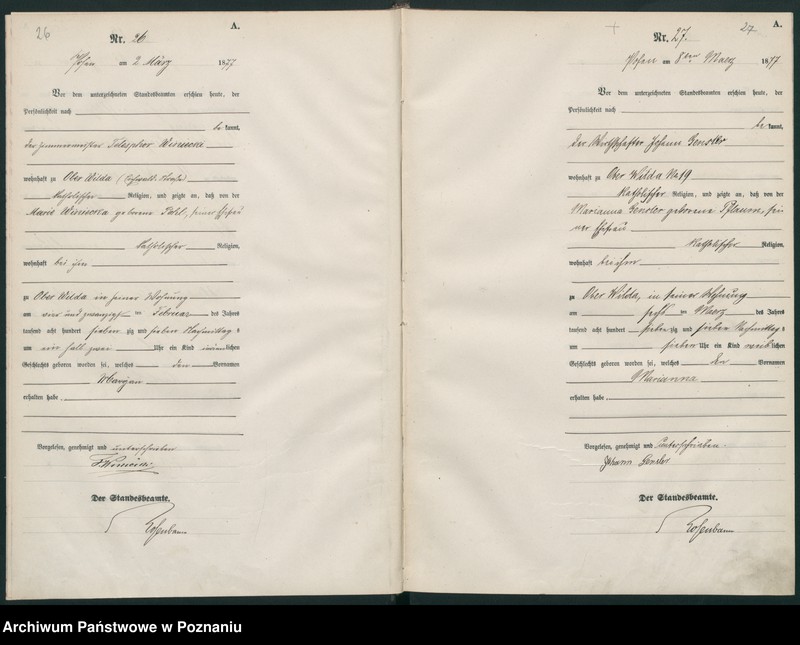 26
A.
Nr. 26
Posen am 2 März 1877
Vor dem unterzeichneten Standesbeamten erschien heute, der
Persönlichkeit nach
bekannt,
der Telesphor
wohnhaft zu Ober Wilda
katholischer Religion, und zeigte an, daß von der
Maria geborene Pohl, seiner Ehefrau
katholischer Religion,
wohnhaft bei ihm
zu Ober Wilda in seiner Wohnung
am vier und zwanzigsten ten Februar des Jahres
tausend acht hundert sieben zig und sieben Nachmittag s
um halb zwei Uhr ein Kind männlichen
Geschlechts geboren worden sei, welches den Vornamen
Maryan
erhalten habe.
Vorgelesen, genehmigt und unterschrieben
Der Standesbeamte.
Rosenbaum
27
A.
Nr. 27.
Posen am 8ten Maerz 1877
Vor dem unterzeichneten Standesbeamten erschien heute, der
Persönlichkeit nach
bekannt,
der Johann Gensler
wohnhaft zu Ober Wilda No 19
katholischer Religion, und zeigte an, daß von der
Marianna Gensler geborene Pflaum, sei
ner Ehefrau
katholischer Religion,
wohnhaft bei ihm
zu Ober Wilda, in seiner Wohnung
am ten Maerz des Jahres
tausend acht hundert sieben zig und sieben Nachmittag s
um sieben Uhr ein Kind weiblichen
Geschlechts geboren worden sei, welches den Vornamen
Marianna
erhalten habe.
Vorgelesen, genehmigt und unterschrieben.
Johann Gensler
Der Standesbeamte.
Rosenbaum
Archiwum Państwowe w Poznaniu